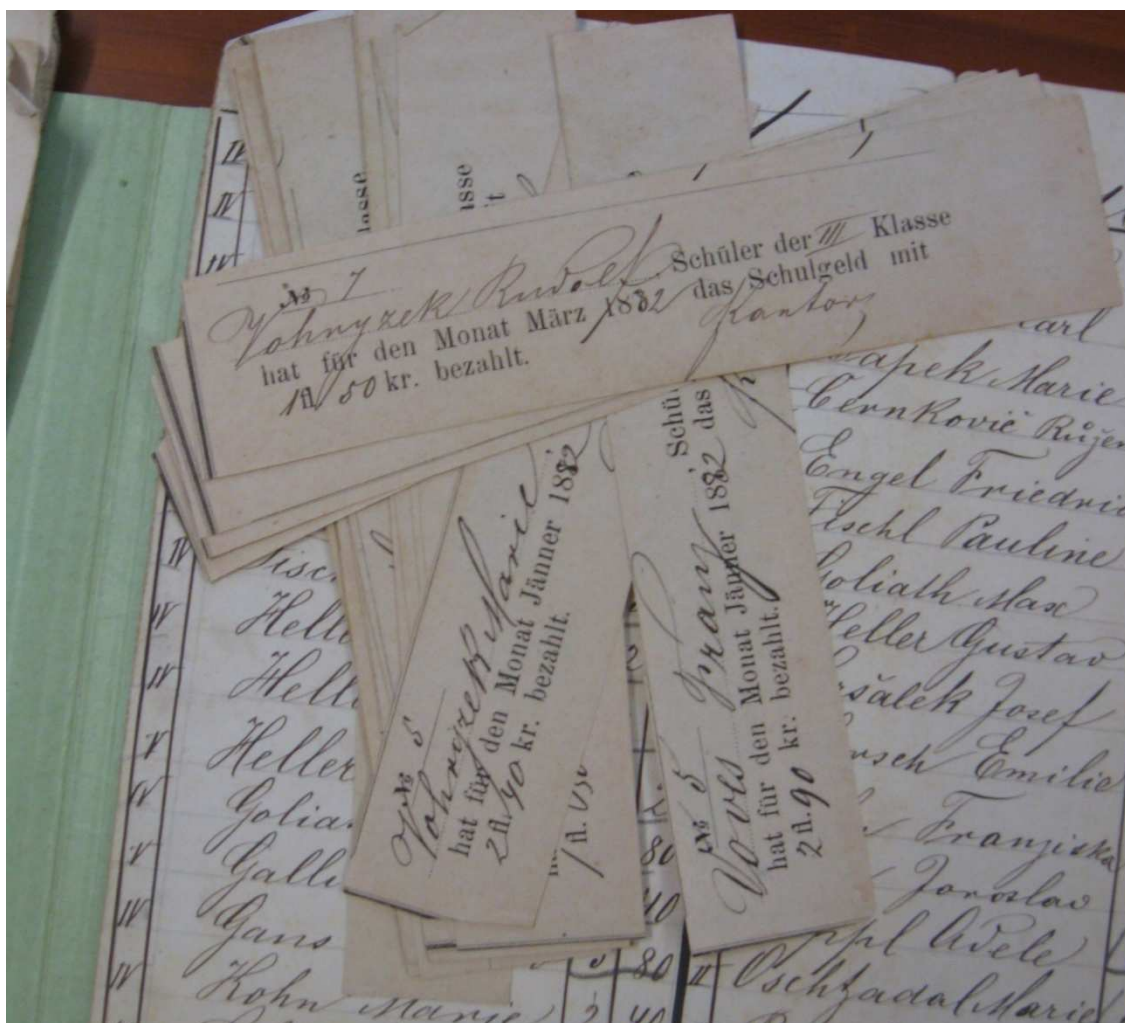 № 7
Vohryzek Rudolf Schüler der III Klasse
hat für den Monat März 1882 das Schulgeld mit
1 fl. 50 kr. bezahlt. Kantor
lasse
asse
№ 5
Vohryzek Marie
hat für den Monat Jänner 1882
2 fl. 40 kr. bezahlt.
1 fl.
№ 5
Voves Franz Schü
hat für den Monat Jänner 1882 das
2 fl. 90 kr. bezahlt.
IV
IV
IV Fisc
IV Hell
IV Hell
V Heller
IV Golia
V Galli
IV Gans
IV Kohn Marie 2 40
80
40
80
arl
apek Marie
Černkovič Růžen
Engel Friedri
Fischl Pauline
Goliath Max
Heller Gustav
ršálek Josef
Emilie
Franziska
Jaroslav
ppl Adele
II Oschtzadal Marie